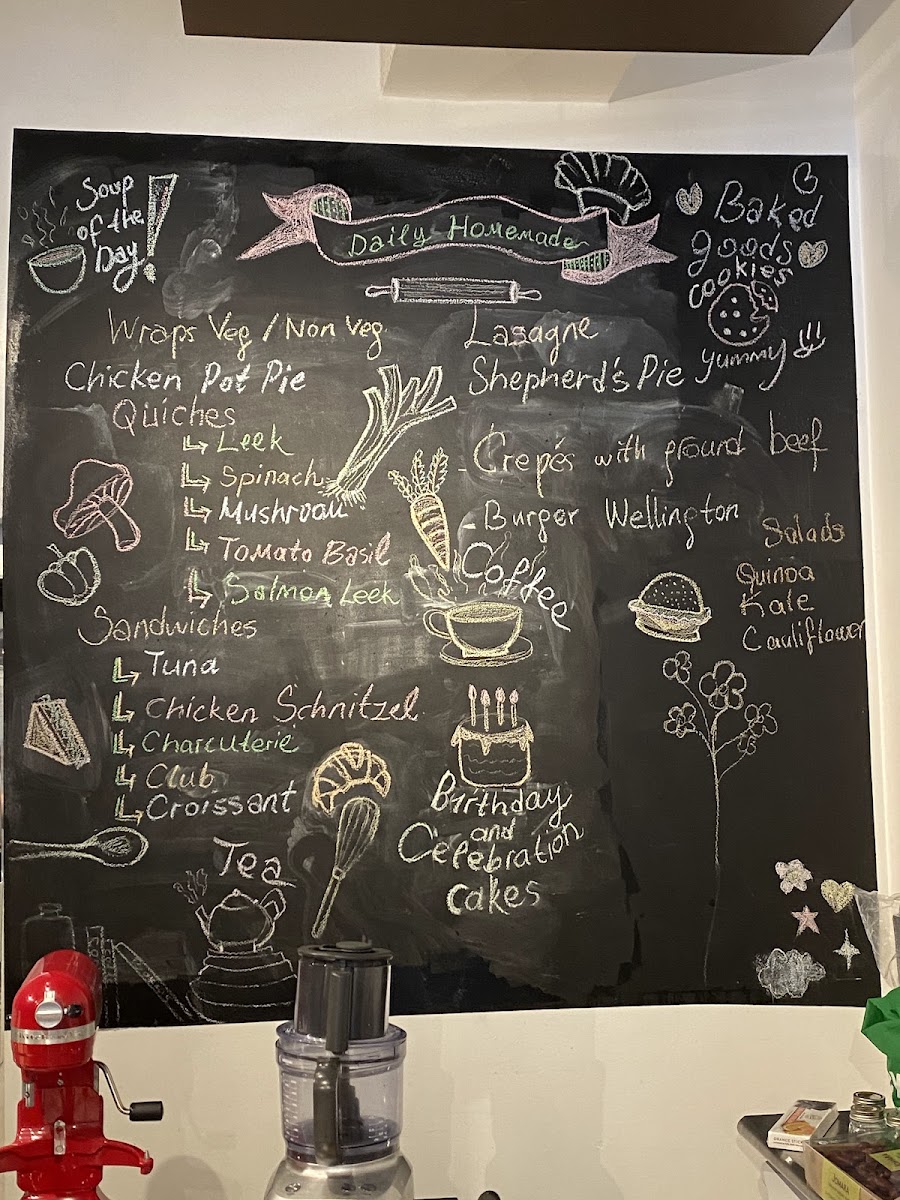 Soup
of the
Day!
Daily Homemade
Baked
goods
cookies
yummy
Wraps Veg / Non Veg
Chicken Pot Pie
Quiches
Leek
Spinach
Mushroom
Tomato Basil
Salmon Leek
Sandwiches
Tuna
Chicken Schnitzel
Charcuterie
Club
Croissant
Tea
Lasagne
Shepherd's Pie
- Crepés with ground beef
- Burger Wellington
Coffee
Birthday
and
Celebration
cakes
Salads
Quinoa
Kale
Cauliflower
KitchenAid